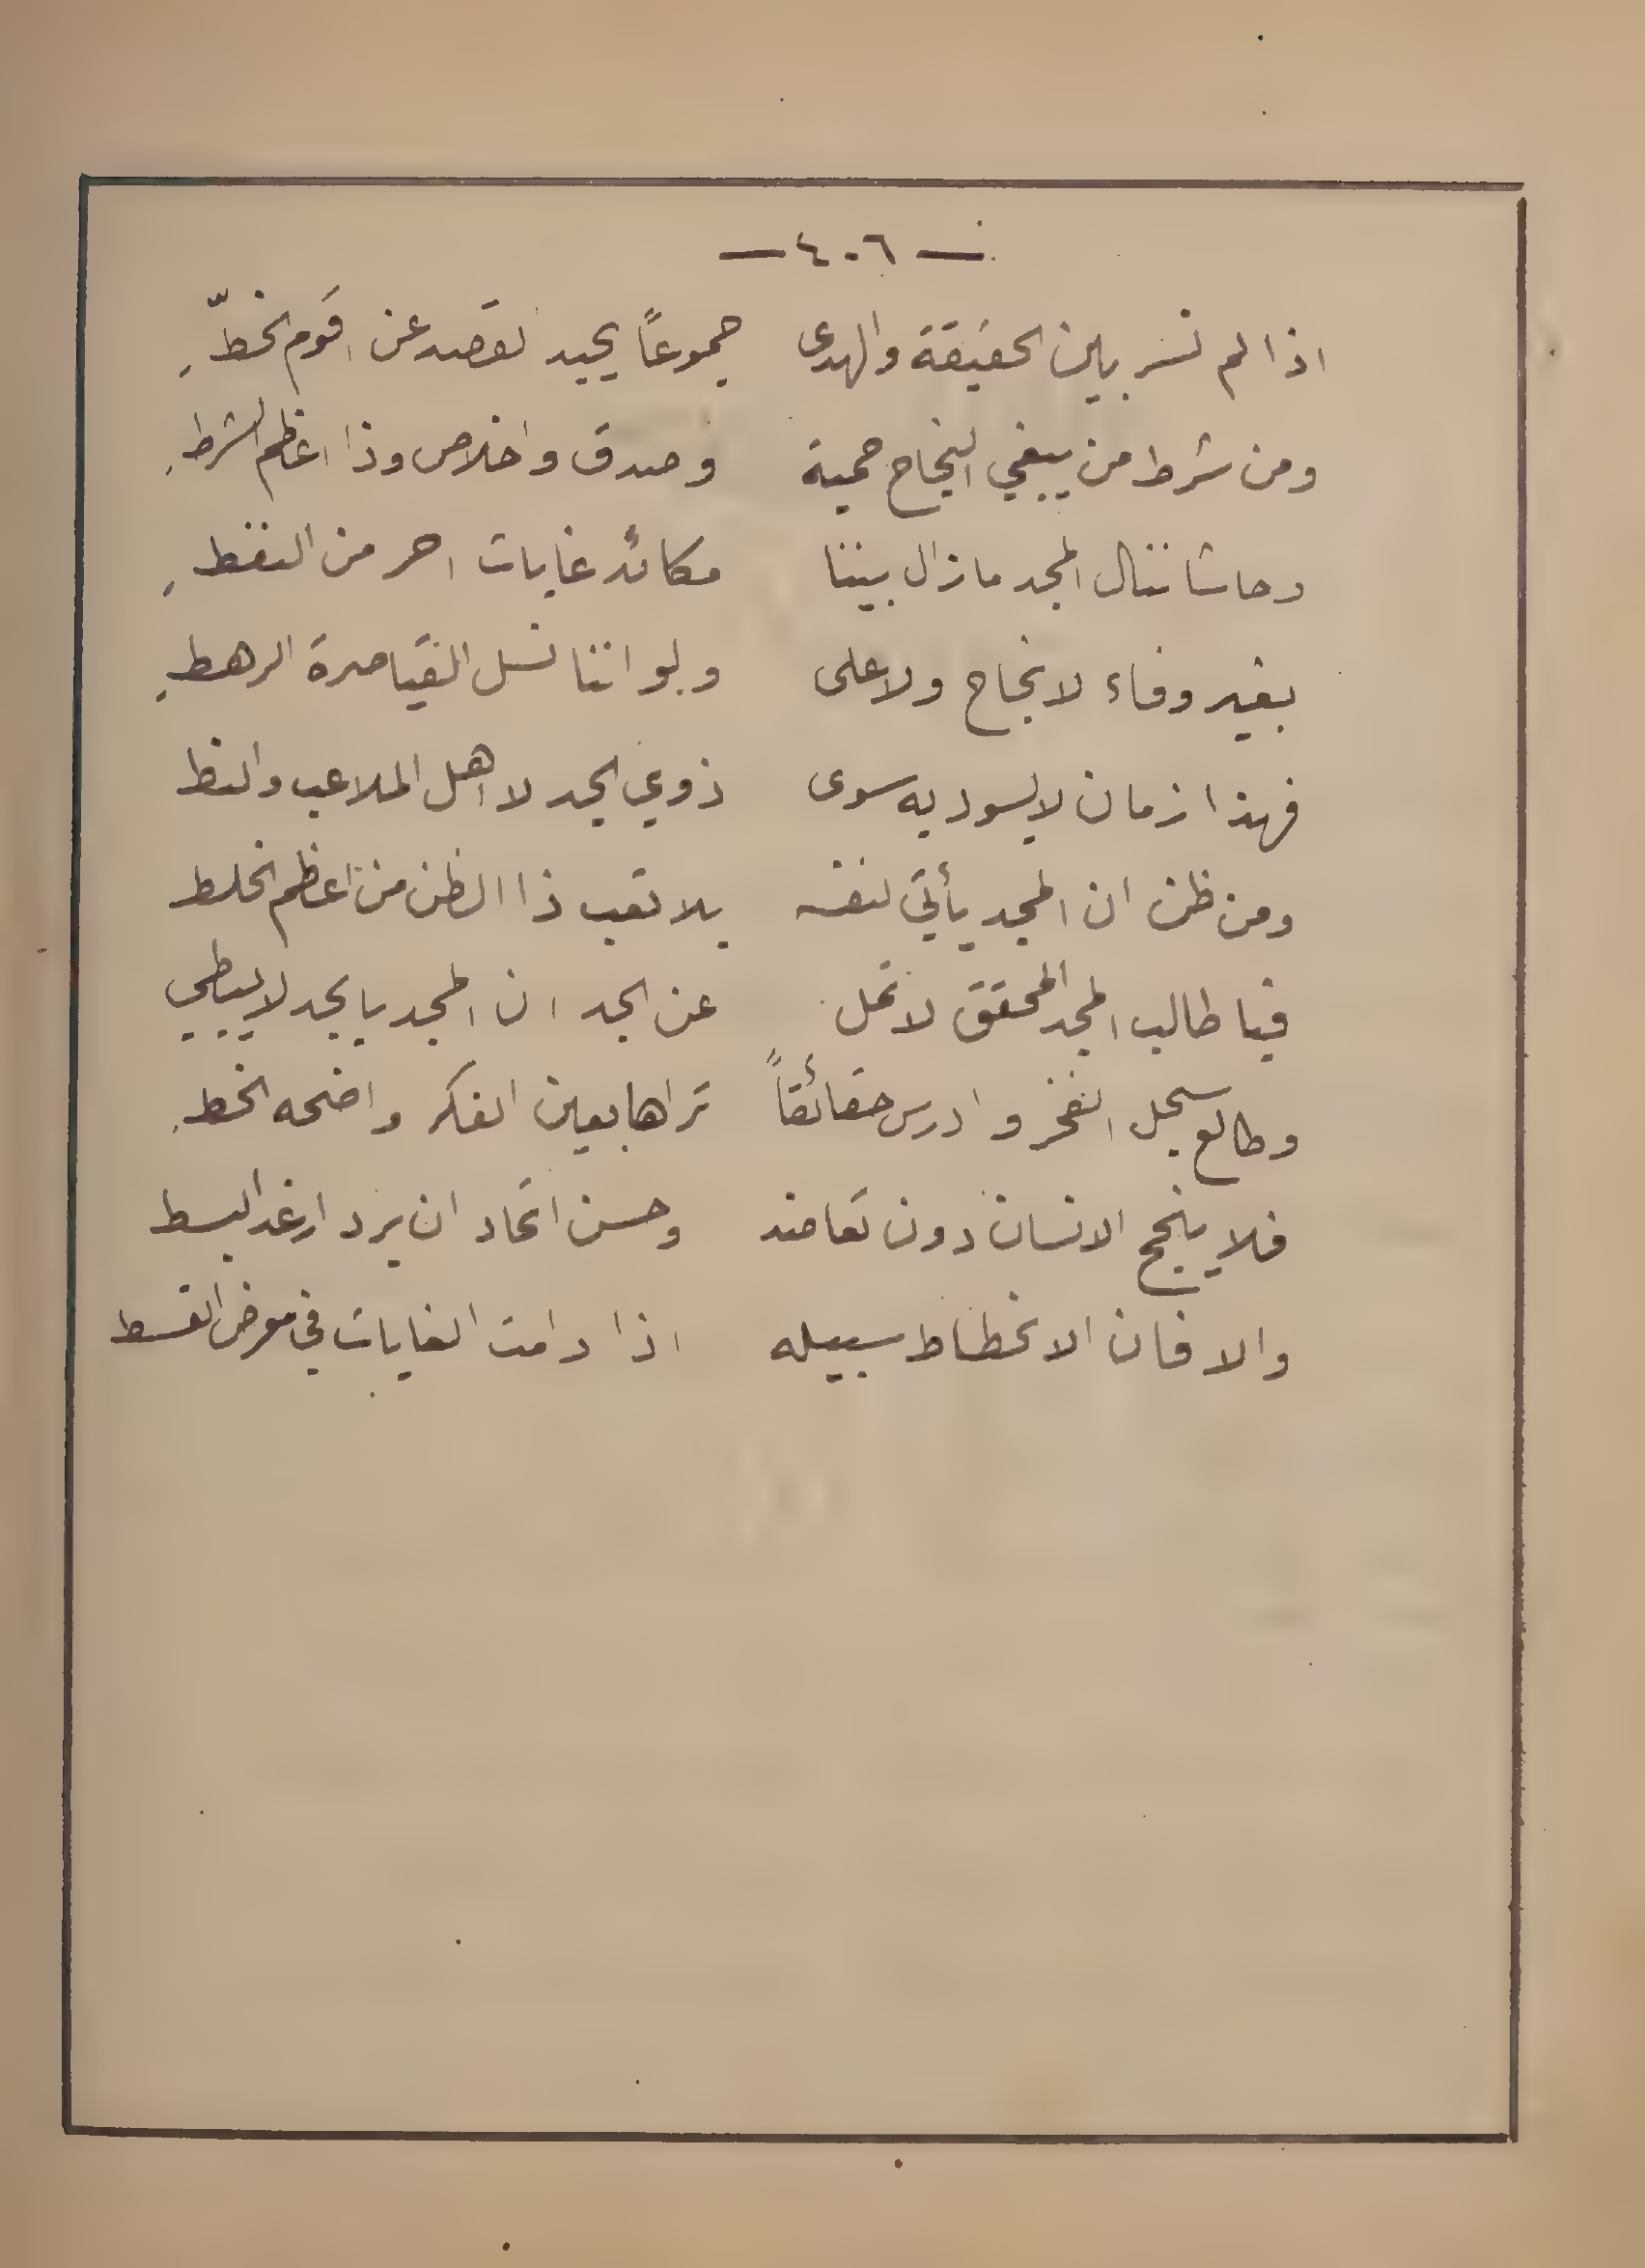 — ٤٠٦ —
اذا لم نسر بين الحقيقة والهدى جموعاً يحيد لقصد عن اقوم الخطِّ
ومن شرط من يبغي النجاح حمية وصدق واخلاص وذا اعظم الشرطِ
وحاشا ننال المجد ما زال بيننا مكائد غايات احر من النفطِ
بغير وفاء لا نجاح ولا على ولو اننا نسل القياصرة الرهطِ
فهذا زمان لا يسود به سوى ذوي الجد لا اهل الملاعب والنط
ومن ظن ان المجد يأتي لنفسه بلا تعب ذا الظن من اعظم الخلط
فيا طالب المجد المحقق لا تمل عن الجد ان المجد بالجد لا يبطي
وطالع سجل الفخر وادرس حقائقاً تراها بعين الفكر واضحه الخطِ
فلا ينجح الانسان دون تعاضد وحسن اتحاد ان يرد ارغد البسط
والا فان الانحطاط سبيله اذا دامت الغايات في معرض القسط